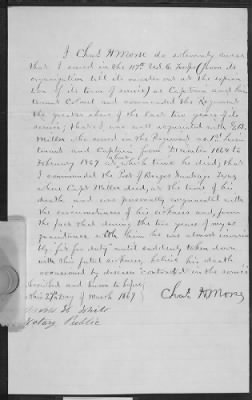 I Chas. H Morse do solemnly swear
that I served in the 117th U.S.C. Troops from its
organization till its muster out at the expira-
tion of its term of service as Captain and Lieu-
tenant Colonel and commanded the Regiment
the greater share of the last two years of its
service; that I was well acquainted with
who served in the Regiment as 1st Lieu-
tenant and Captain from 1864 to
February 1867 about which time he died; that
I commanded the Post of Brazos Santiago Texas
where Capt died, at the time of his
death, and was personally cognizant with
the circumstances of his sickness and, from
the fact that during the two years of my ac-
quaintance with him he was almost invaria-
bly "fit for duty" until suddenly taken down
with this fatal sickness, believe his death
occasioned by disease contracted in the service
Subscribed and sworn to before
this 27th Day of March 1869
Chas H Morse
White
Notary Public